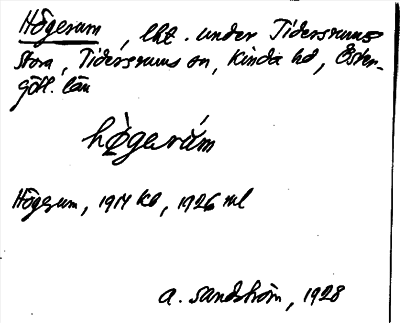 Högerum, lht. under Tidersrums
stora, Tidersrums sn, Kinda hd, Öster-
götl. län
hø̀gerúm
Högerum, 1914 kb, 1926 ml
A. Sandström, 1928